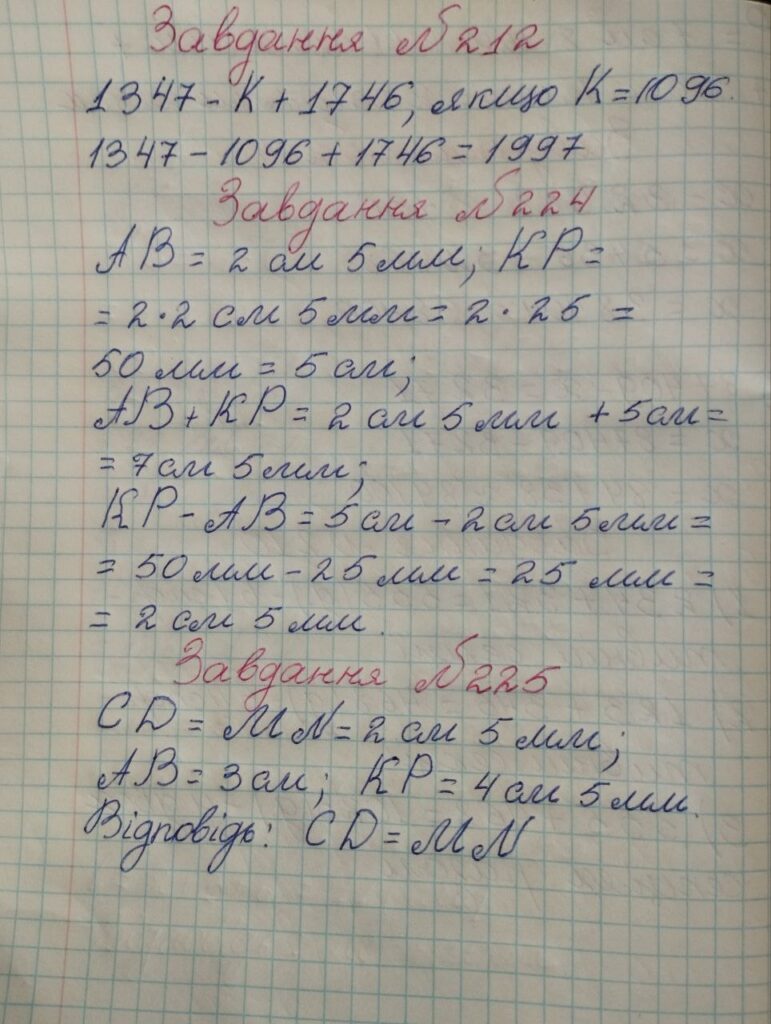 Завдання №212
1347 - К + 1746, якщо К = 1096.
1347 - 1096 + 1746 = 1997
Завдання №224
АВ = 2 см 5 мм; КР =
= 2 · 2 см 5 мм = 2 · 25 =
50 мм = 5 см;
АВ + КР = 2 см 5 мм + 5 см =
= 7 см 5 мм;
КР - АВ = 5 см - 2 см 5 мм =
= 50 мм - 25 мм = 25 мм =
= 2 см 5 мм.
Завдання №225
CD = MN = 2 см 5 мм;
АВ = 3 см; КР = 4 см 5 мм.
Відповідь: CD = MN